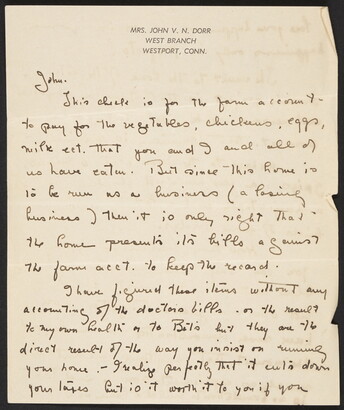 MRS. JOHN V. N. DORR
WEST BRANCH
WESTPORT, CONN.
John.
This check is for the farm account -
to pay for the vegetables, chickens, eggs,
milk ect. that you and I and all of
us have eaten. But since this home is
to be run as a business (a losing
business) then it is only right that
the home presents its bills against
the farm acct. to keep the record.
I have figured these items without any
accounting of the doctors bills - or the result
to my own health or to Bet's but they are the
direct result of the way you insist on running
your home. - I realize perfectly that it cuts down
your taxes but is it worth it to you if you